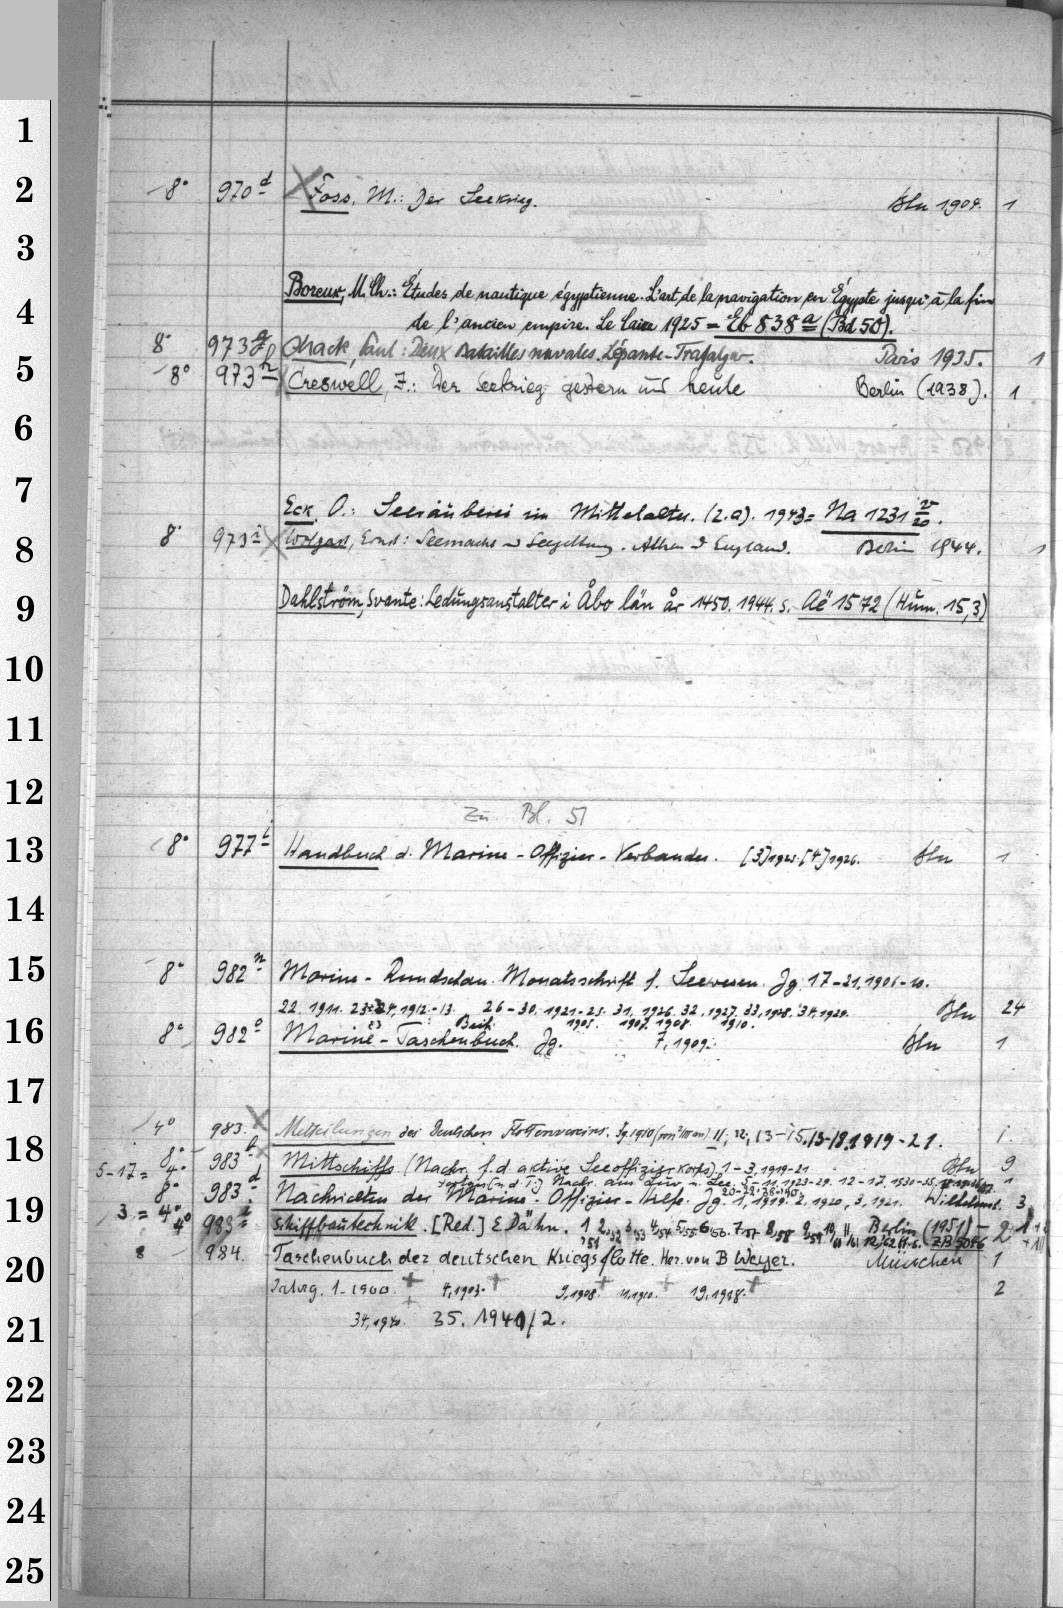 1
2
8° 970 d Foss, M.: Der Seekrieg. Bln 1904. 1
3
Boreux, M. Ch.: Études de nautique égyptienne. L'art de la navigation en Égypte jusqu'à la fin
4
de l'ancien empire. Le Caire 1925 = Eb 838 a (Bd 50).
8° 973 g Chack, Paul: Deux Batailles navales. Lépante-Trafalgar. Paris 1935. 1
5
8° 973 h Creswell, J.: Der Seekrieg gestern und heute Berlin (1938). 1
6
7
Eck, O.: Seeräuberei im Mittelalter. (2.a). 1943 = Na 1231 v/20.
8
8° 973 i Wolgast, Ernst: Seemacht u Seegeltung. Athen u England. Berlin 1944. 1
9
Dahlström, Svante: Ledungsanstalter i Åbo län år 1450. 1944. s. Aë 1572 (Hum. 15,3)
10
11
12
Zu Bl. 51
13
8° 977 i Handbuch d. Marine-Offizier-Verbandes. [3] [4] 1926. Bln 1
14
15
8° 982 n Marine-Rundschau. Monatsschrift f. Seewesen. Jg. 17-21, 1906-10.
22. 1911. 1912-13. 26-30, 1921-25. 31, 1926. 32, 1927. 33, 1928. 34, 1929. Bln 24
16
1905. 1907. 1908. 1910.
8° 982 o Marine-Taschenbuch. Jg. 7, 1909. Bln 1
17
4° 983. Mitteilungen des Deutschen Flottenvereins. Jg. 1910 11, 12, 13-15, 1919-21. 1
18
8° 983 b Mittschiffs (Nachr. f. d. aktive Seeoffizierkorps) 1-3, 1919-21 Bln 9
5-17 = 4°
8° 983 d Nachrichten der Marine-Offizier-Hilfe. Jg. 1, 1919. 2, 1920, 3, 1921. Wilhelmsh. 3
19
3 = 4°
4° 983 i Schiffbautechnik. [Red.] E Dähn. 1 Berlin (1951)- 2
ZB 5086
20
8 984. Taschenbuch der deutschen Kriegsflotte. Her. von B Weyer. München 1
Jahrg. 1-1900 4, 1903. 9, 1908 11, 1910. 19, 1918. 2
21
34, 1940. 35. 1941/2.
22
23
24
25